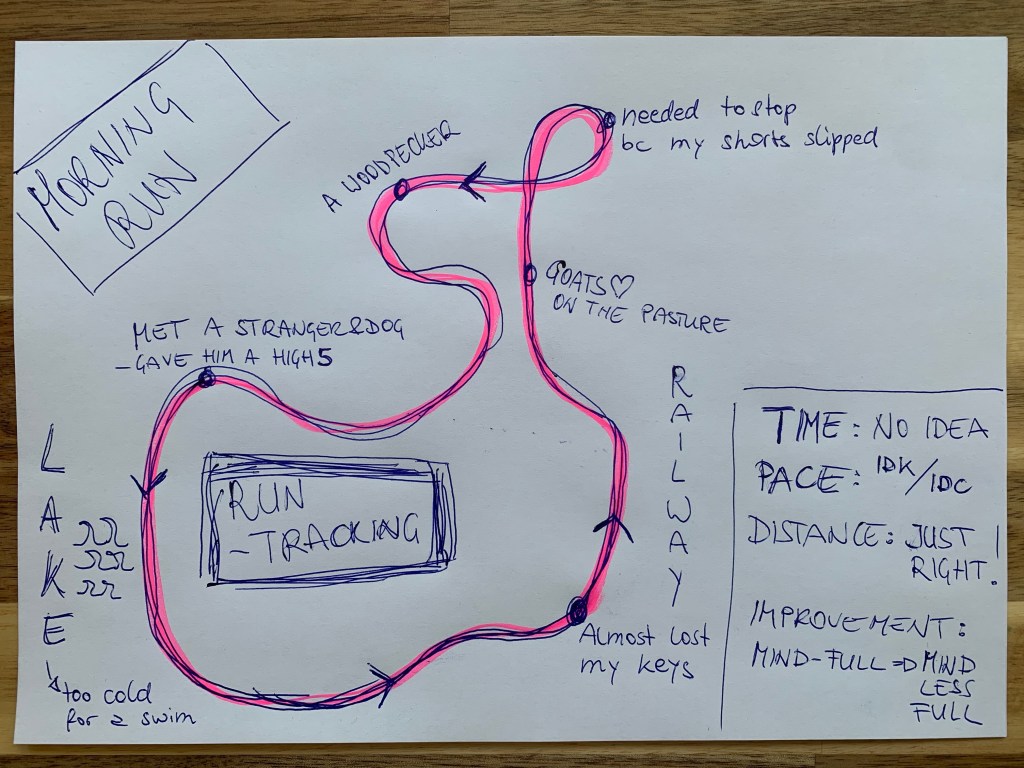 MORNING
RUN
needed to stop
bc my shorts slipped
A WOODPECKER
GOATS♡
ON THE PASTURE
MET A STRANGER&DOG
- GAVE HIM A HIGH5
RAILWAY
LAKE
too cold
for a swim
RUN
- TRACKING
Almost lost
my keys
TIME: NO IDEA
PACE: IDK/IDC
DISTANCE: JUST
RIGHT!
IMPROVEMENT:
MIND-FULL => MIND
LESS
FULL